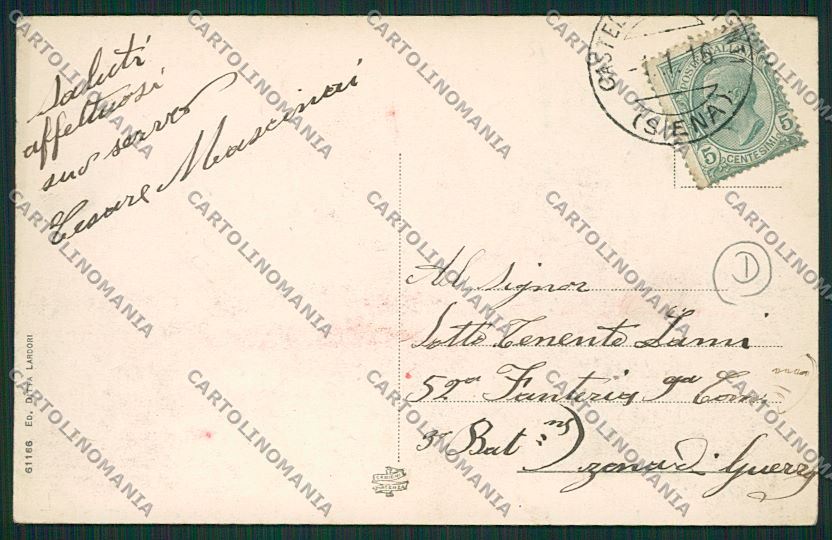 Saluti
affettuosi
suo servo
Cesare Mascinai
CASTEL
1.1.16
(SIENA)
POSTE ITALIANE
5 CENTESIMI 5
Al Signor
Sotto Tenente Lami
52a Fanteria 9a Com
3° Bat:ne
zona di Guerra
61166 ED. DITTA LARDORI
CARTOLINOMANIA